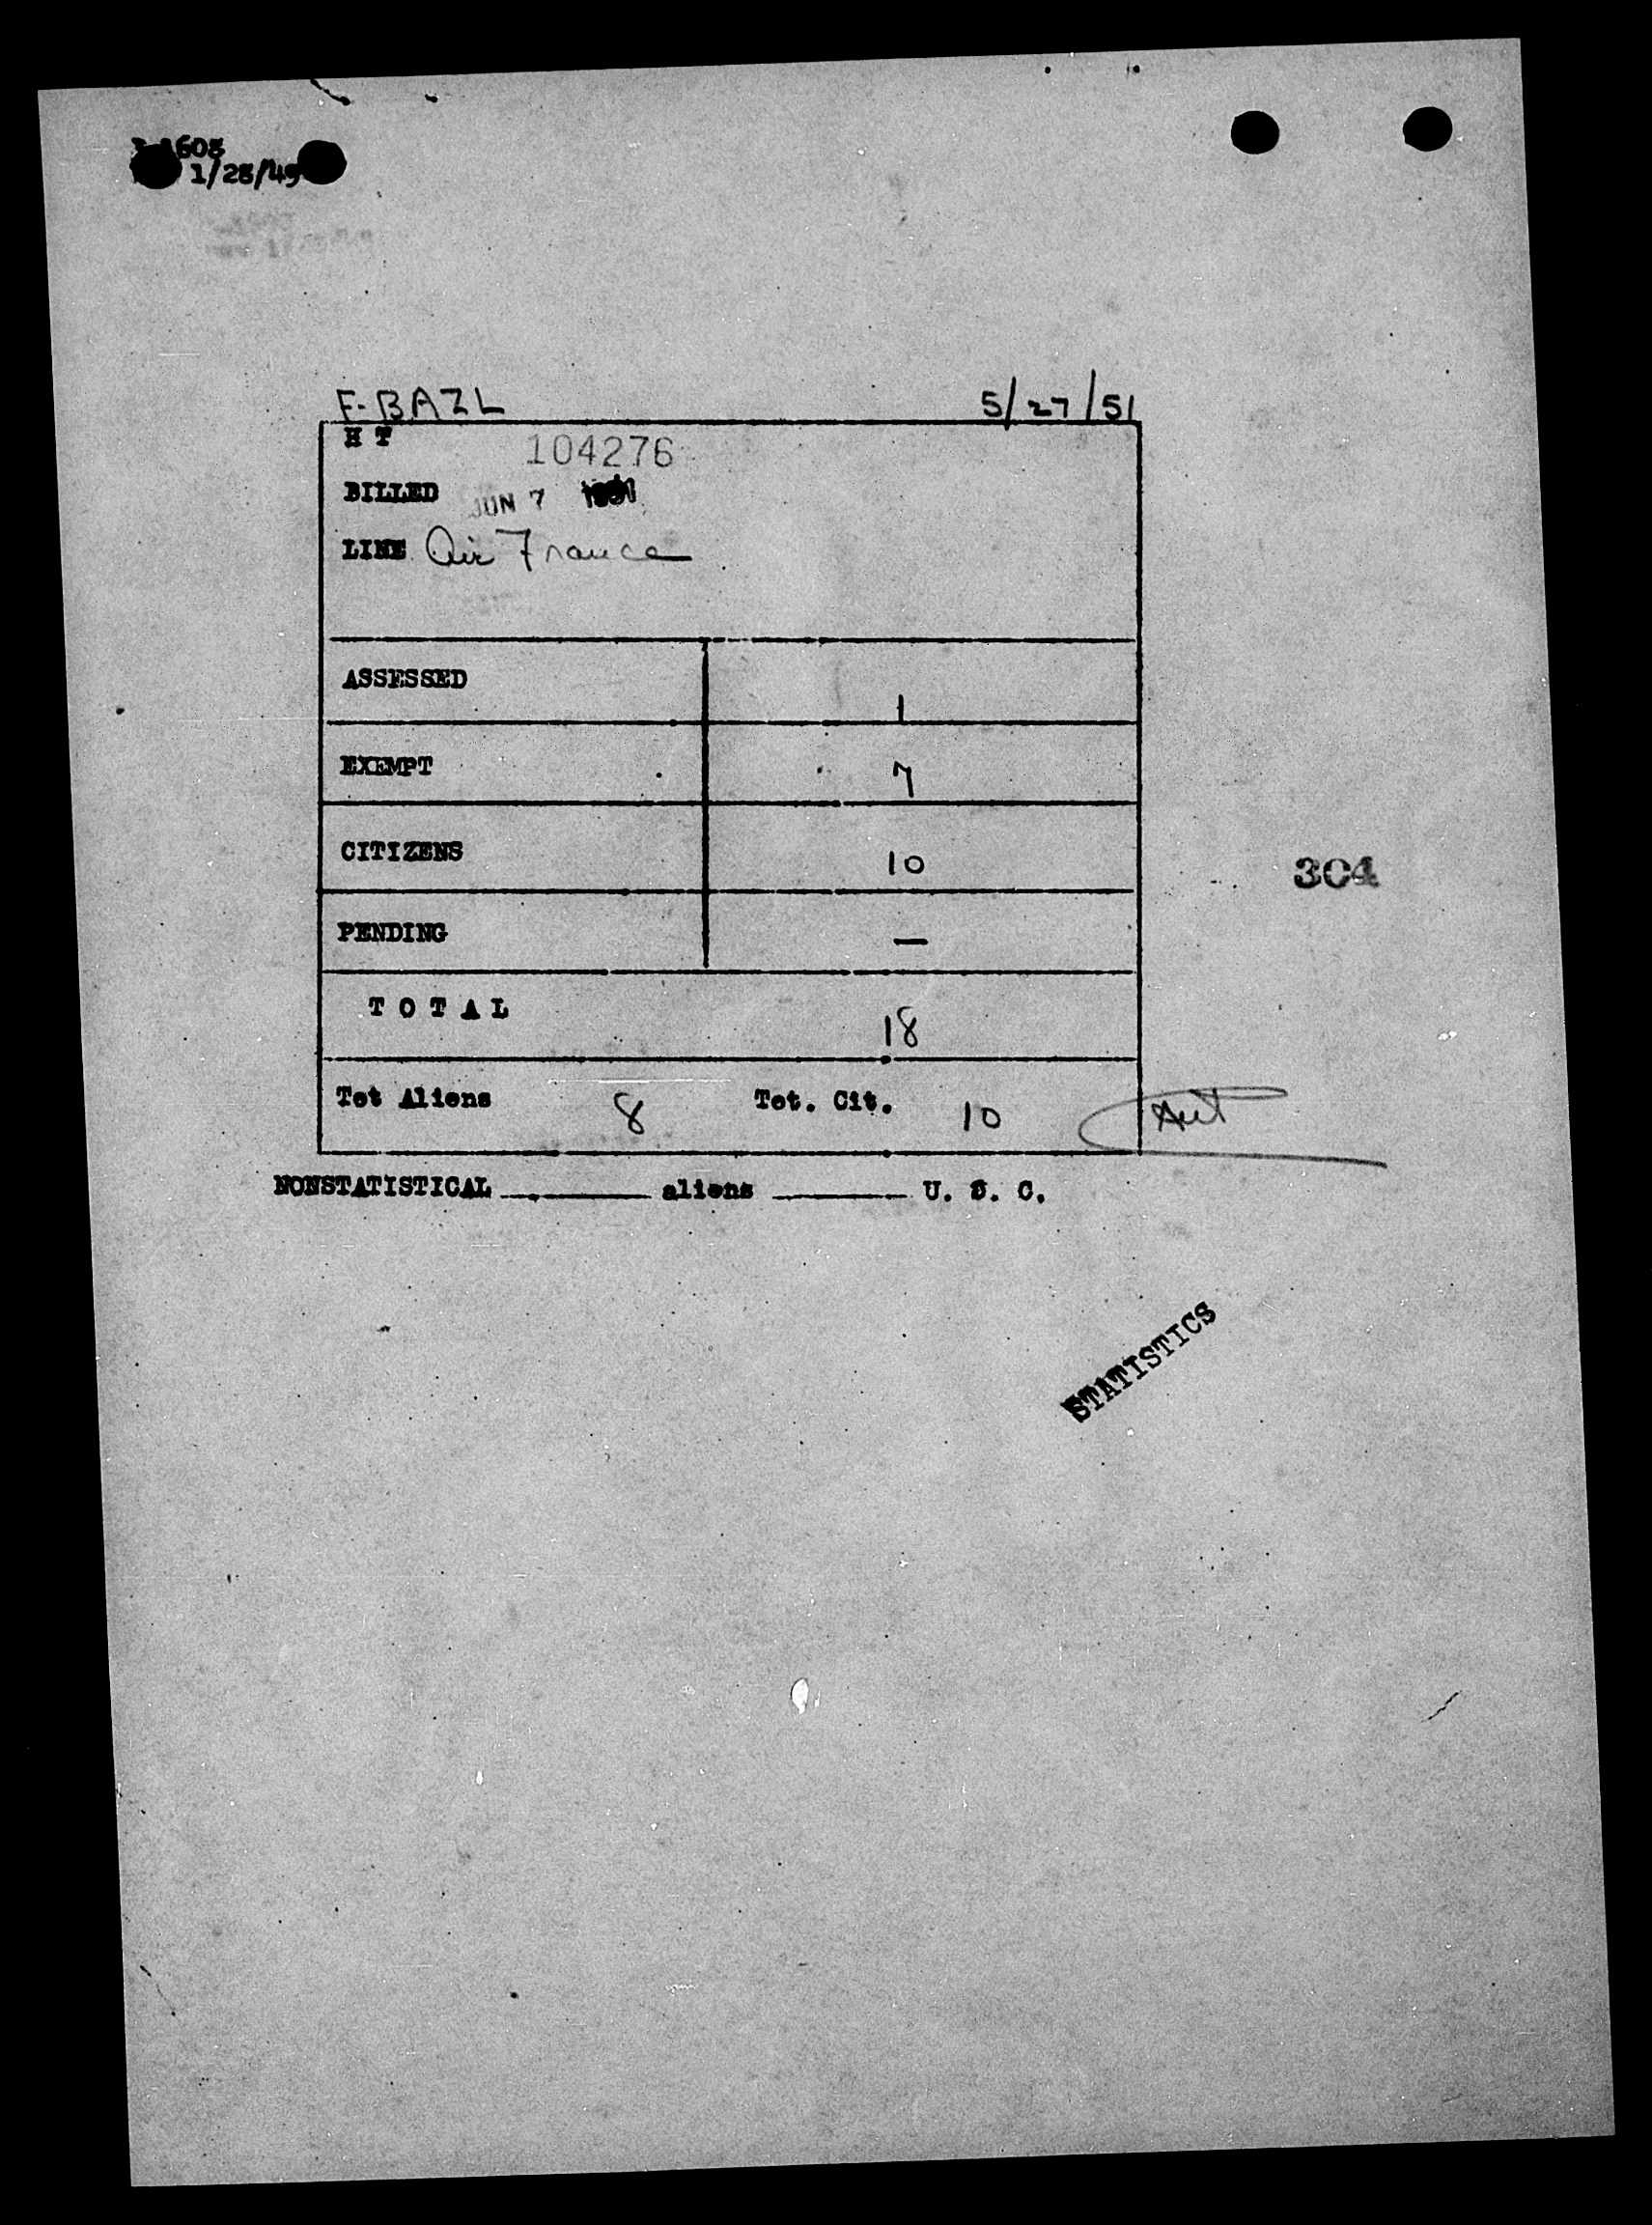 603
1/28/49
F-BAZL 5/27/51
H T 104276
BILLED JUN 7 1951
LINE Air France
ASSESSED 1
EXEMPT 7
CITIZENS 10
304
PENDING —
T O T A L 18
Tot Aliens 8 Tot. Cit. 10
NONSTATISTICAL ______ aliens ______ U. S. C.
STATISTICS